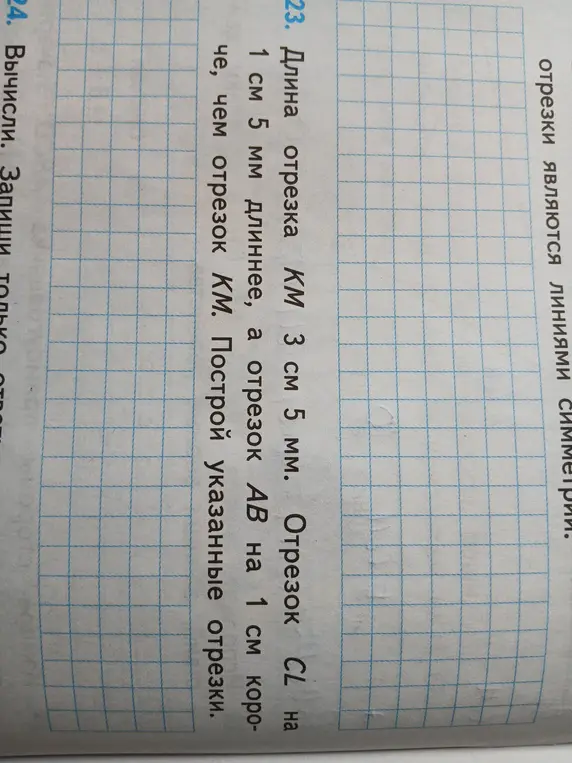 отрезки являются линиями симметрии.
23. Длина отрезка КМ 3 см 5 мм. Отрезок CL на
1 см 5 мм длиннее, а отрезок АВ на 1 см коро-
че, чем отрезок КМ. Построй указанные отрезки.
24. Вычисли. Запиши только